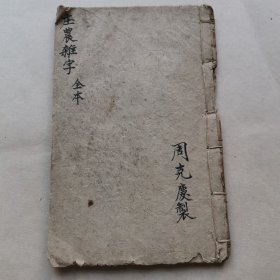 士農雜字 全本
周克慶製